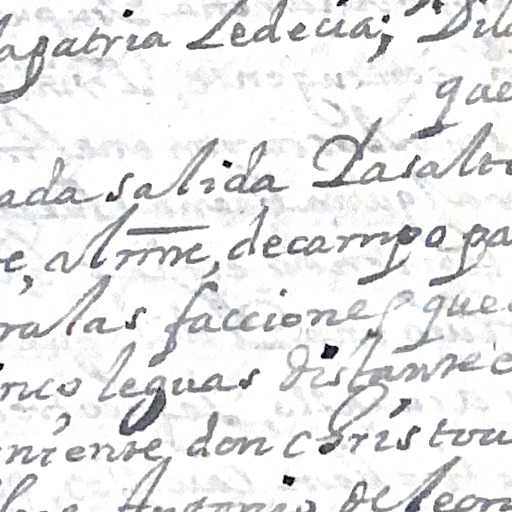 lapatria Ledecia; Dil
que
ada salida Dasalto
e, almrre, decampo pa
ralas facciones que
inco leguas distante e
niente, don christou
Antonio de leon